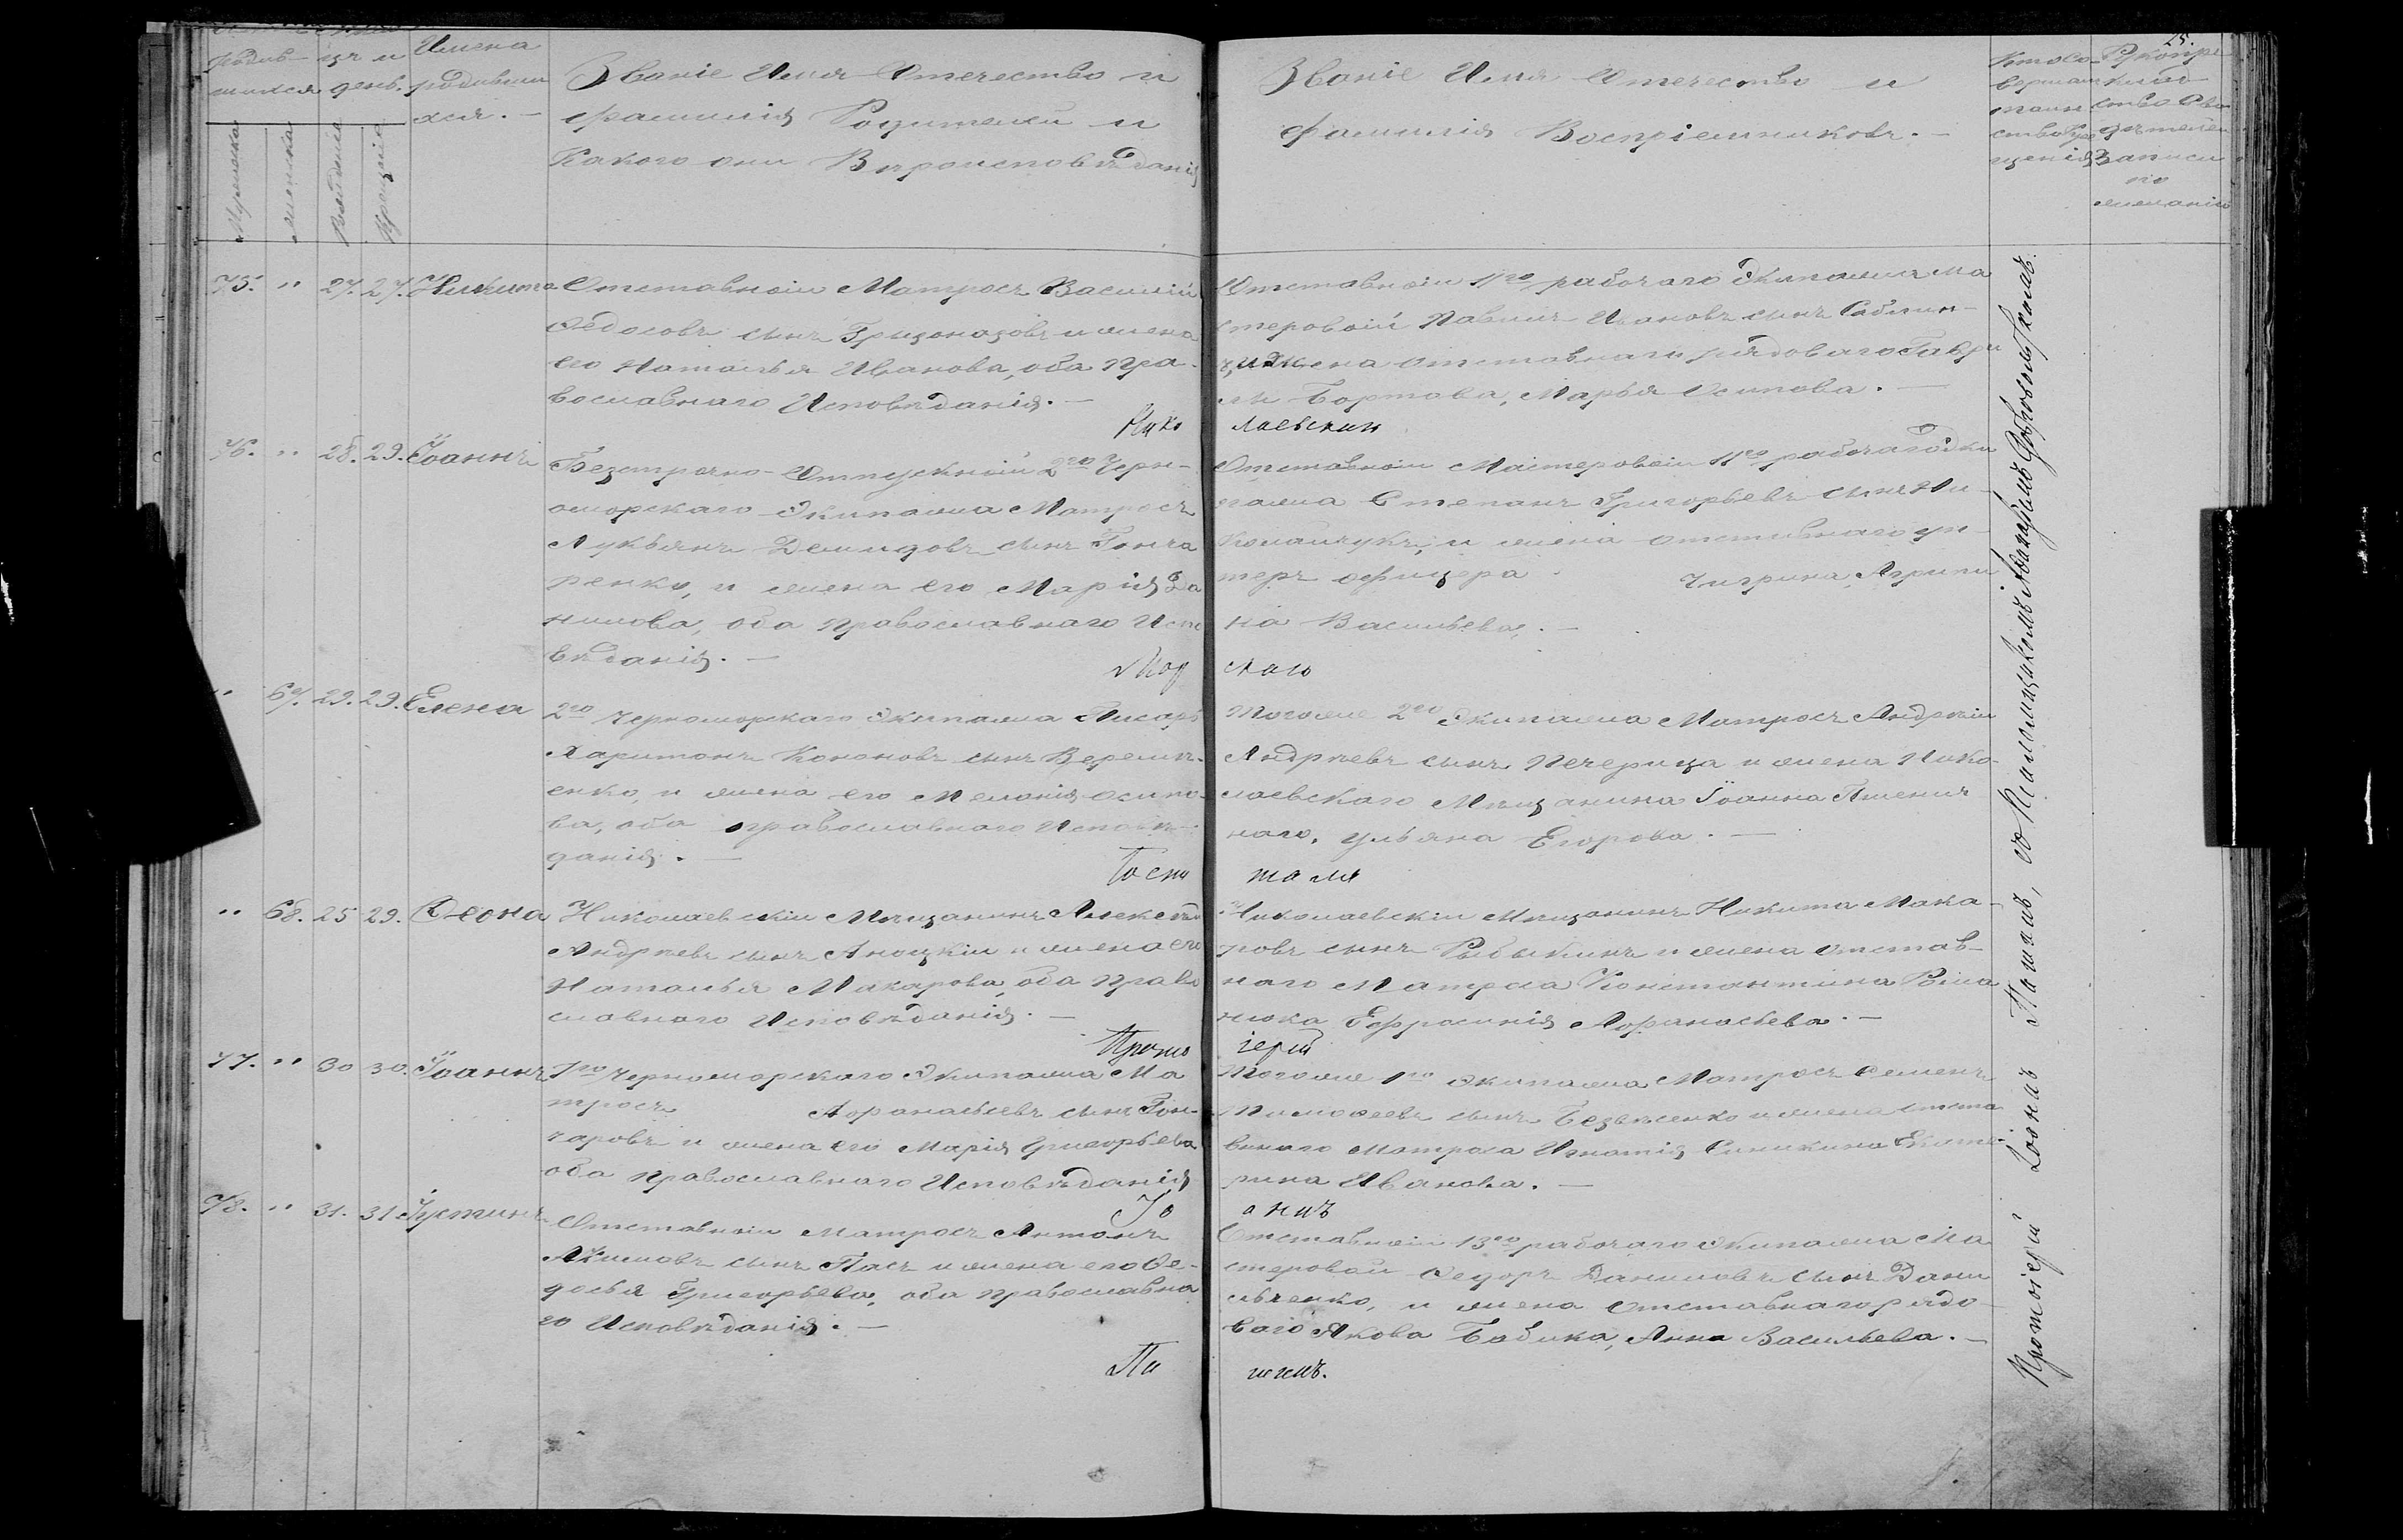 25.
родив-
шихся
день.
Имена
родивши
хся. -
Званіе Имя Отечество и
фамилія Родителей и
Какого они Вѣроисповѣданія
Мужеска
женска
Рожденія
Крещенія
Званіе Имя Отечество и
фамилія Воспріемниковъ. -
Кто со-
вершалъ
таин
ство Кре
щенія
Рукопри
клад
ство сви
дѣтелей
записи
по
желанію
75. " 27. 27. Никита
Отставной Матросъ Василій
Федосовъ сынъ и жена
его Наталья Иванова, оба пра-
вославнаго Исповѣданія. -
Отставной 11го рабочаго Экипажа ма
стеровой Ивановъ сынъ
жена отставнаго рядоваго Гаври
ла Бортова, Марья Осипова. -
Нико лаевскій
76. " 28. 29. Іоаннъ
Безсрочно-Отпускной 2го Черн-
оморскаго Экипажа Матросъ
Лукьянъ Демидовъ сынъ Гонча
ренко, и жена его Марія Да
нилова, оба православнаго Испо
вѣданія. -
Отставной Мастеровой 11го рабочаго Эки
пажа Степанъ Григорьевъ сынъ Ни
колайчукъ, и жена отставнаго ун-
теръ офицера Чигрина, Агрипи
на Васильева. -
" 67. 29. 29. Елена
2го Черноморскаго Экипажа Писарь
Харитонъ Кононовъ сынъ Веремѣ-
енко, и жена его Меланія Осипо-
ва, оба православнаго Исповѣ-
данія. -
Тогоже 2го Экипажа Матросъ Андрѣй
Андрѣевъ сынъ Печерица и жена Нико-
лаевскаго Мѣщанина Іоанна Пшенич
наго, Ульяна Егорова. -
" 68. 25 29. Ѳеона
Николаевскій Мѣщанинъ Алексѣй
Андрѣевъ сынъ и жена его
Наталья Макарова, оба право
славнаго Исповѣданія. -
Николаевскій Мѣщанинъ Никита Мака-
ровъ сынъ Рыбыкинъ и жена отстав-
наго Матроса Константина Рома
нюка Ефросинія Афанасьева. -
Прото іерей
77. " 30 30. Іоаннъ
1го Черноморскаго Экипажа Ма
тросъ Афанасьевъ сынъ Гон-
чаровъ и жена его Марія Григорьева
оба православнаго Исповѣданія
Тогоже 1го Экипажа Матросъ Семенъ
Тимофеевъ сынъ и жена отста
внаго матроса Игнатія Синикина Екате-
рина Иванова. -
Іо аннъ
78. " 31. 31 Іустинъ
Отставной матросъ Антонъ
Акимовъ сынъ Пасъ и жена его Ѳе-
досья Григорьева, оба православна
го Исповѣданія. -
Отставной 13го рабочаго Экипажа Ма
стеровой Федоръ Даниловъ сынъ Дани
льченко, и жена отставнаго рядо-
ваго Якова Бабика, Анна Васильева. -
Па
Протоіерей Іоаннъ съ